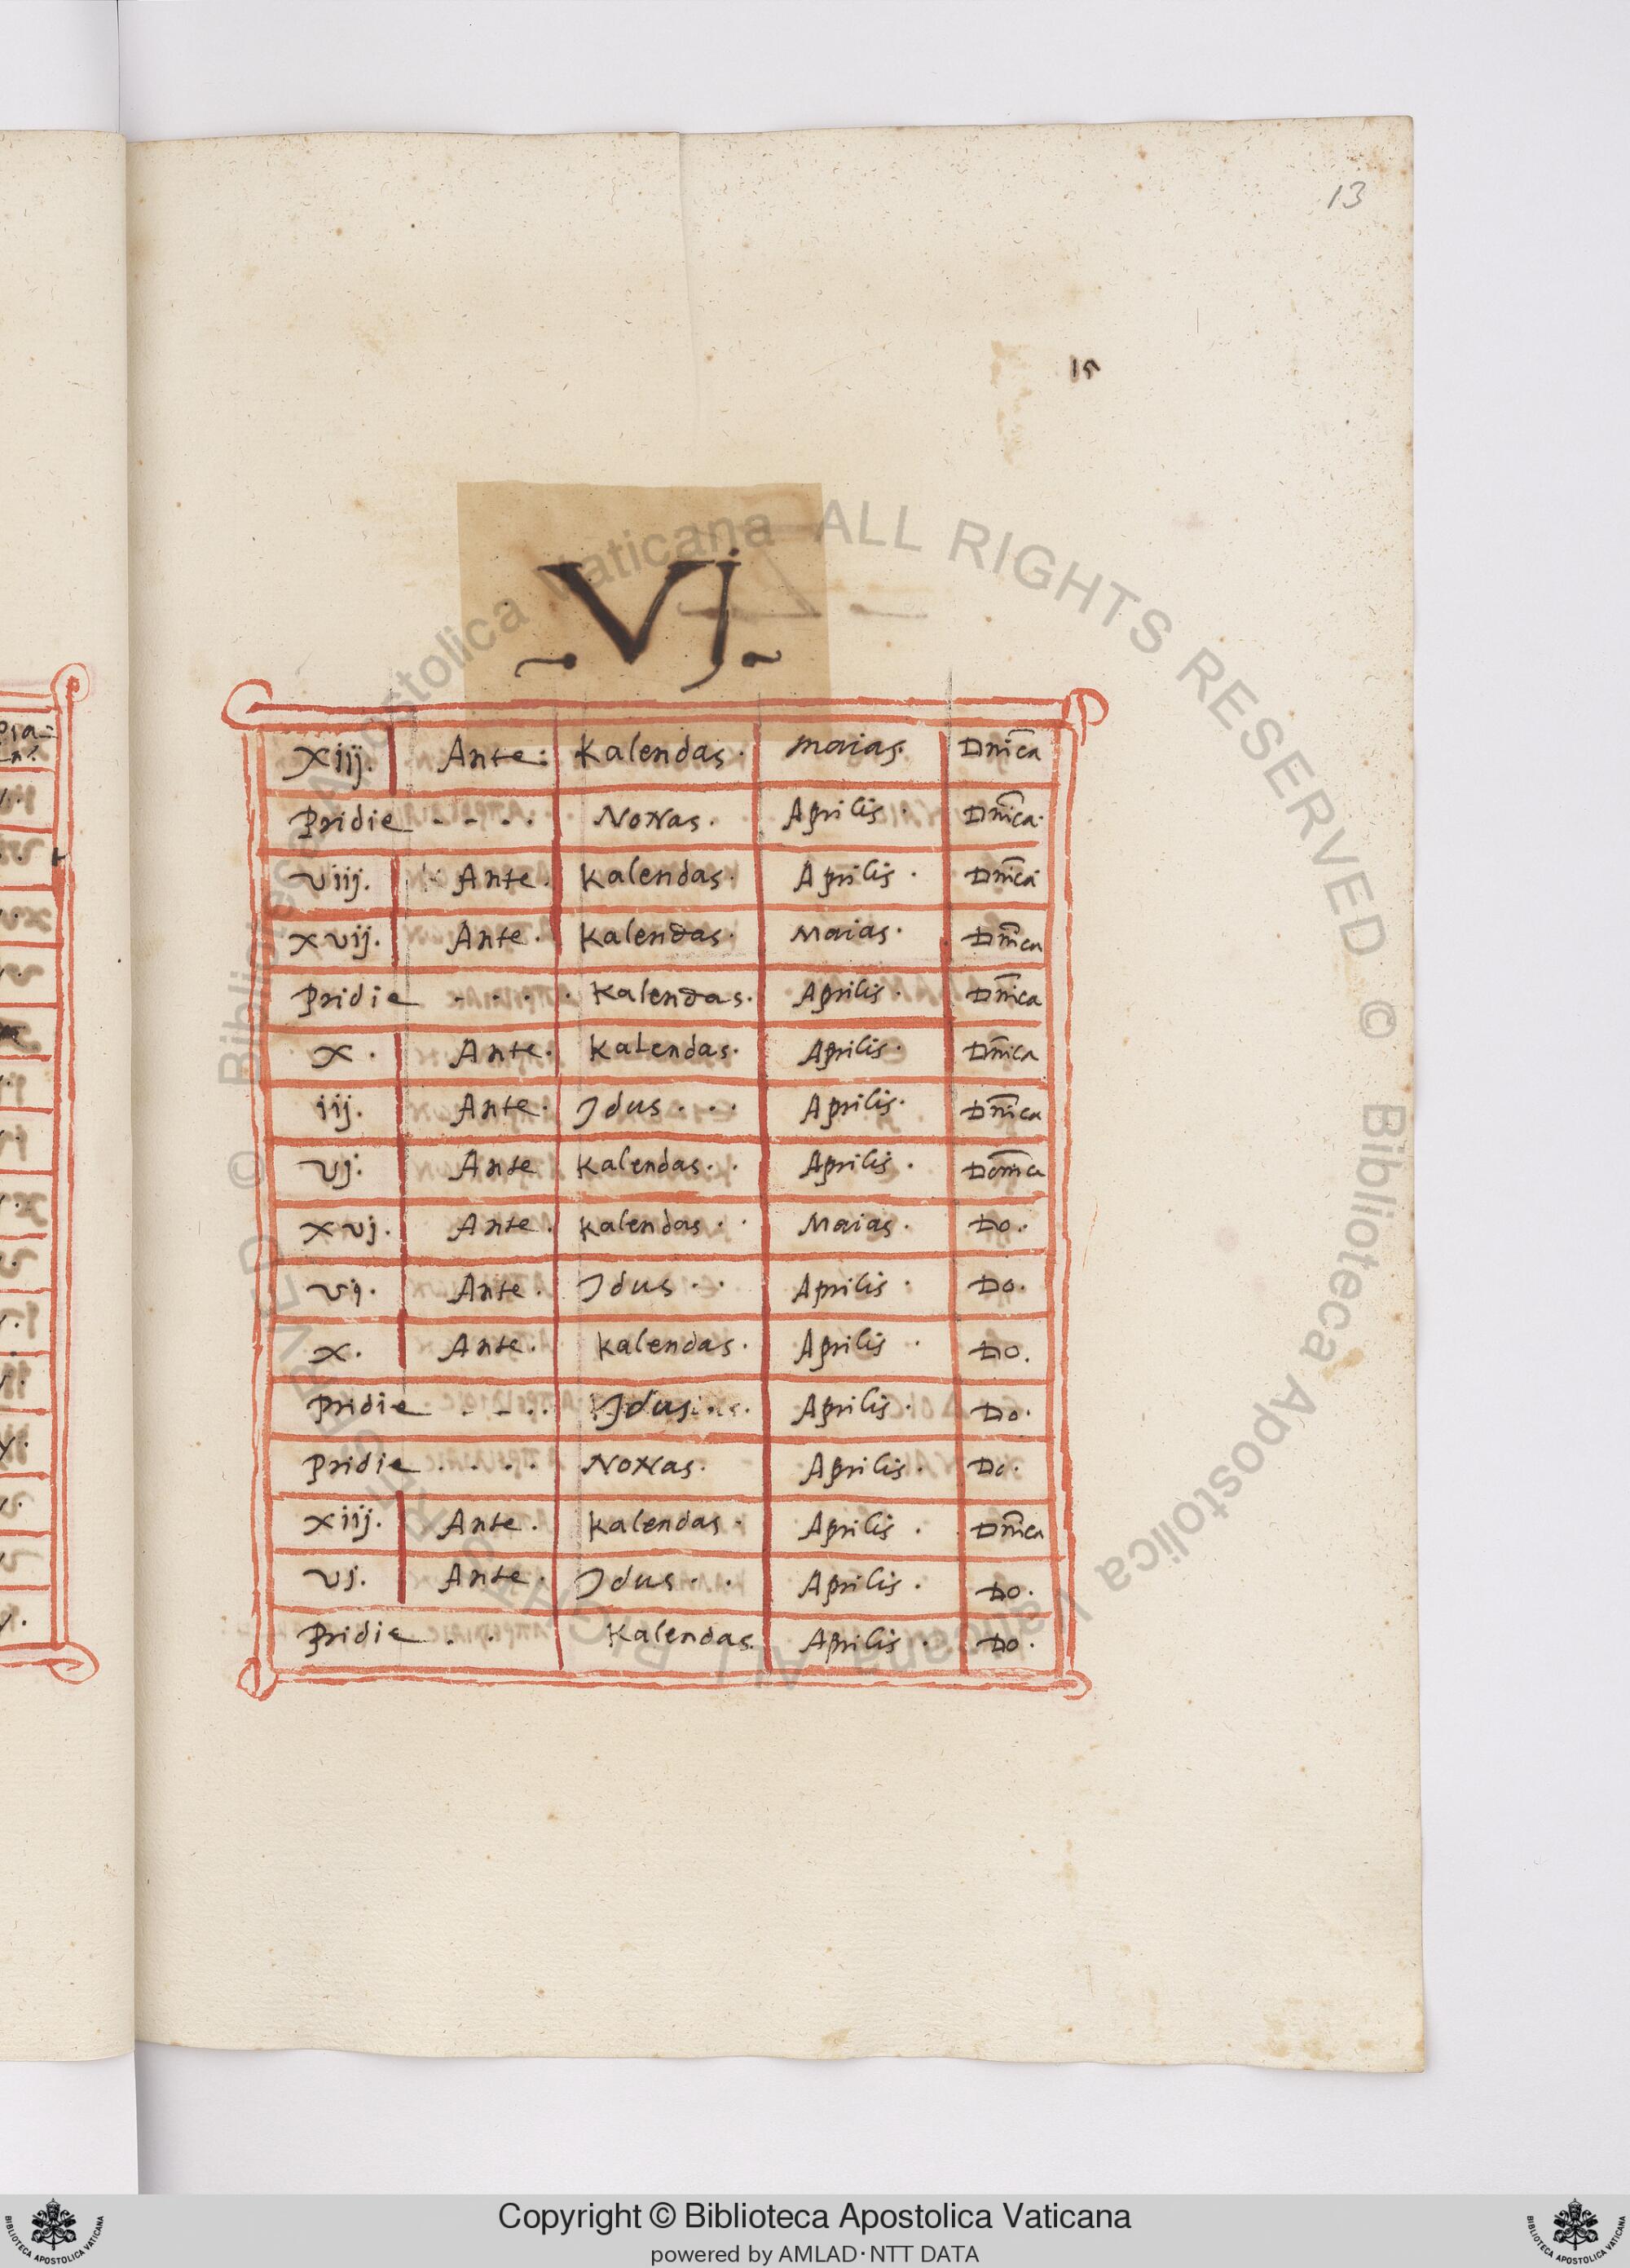 13
15
Vj
Xiij. Ante: Kalendas. Maias. Dn̄ica
Pridie - - . . Nonas. Aprilis. Dn̄ica.
Viij. Ante. Kalendas. Aprilis. Dn̄ica
xvij. Ante. Kalendas. Maias. Dn̄ica
Pridie . . . . Kalendas. Aprilis. Dn̄ica
x. Ante. Kalendas. Aprilis. Dn̄ica
iij. Ante. Jdus . . . Aprilis. Dn̄ica
vj. Ante Kalendas. . . Aprilis. Domīca
xvj. Ante. Kalendas . . Maias. Do.
vj. Ante. Jdus . . Aprilis. Do.
x. Ante. Kalendas. Aprilis . . Do.
Pridie . - - . . Jdus Aprilis. Do.
Pridie . . . . Nonas. Aprilis. Do.
xiij. Ante. Kalendas. Aprilis. Dn̄ica
vj. Ante. Jdus . . Aprilis. Do.
Pridie . . Kalendas. Aprilis. Do.
© Biblioteca Apostolica Vaticana ALL RIGHTS RESERVED © Biblioteca Apostolica Vaticana ALL RIGHTS RESERVED
Copyright © Biblioteca Apostolica Vaticana
powered by AMLAD·NTT DATA
BIBLIOTECA APOSTOLICA VATICANA
BIBLIOTECA APOSTOLICA VATICANA